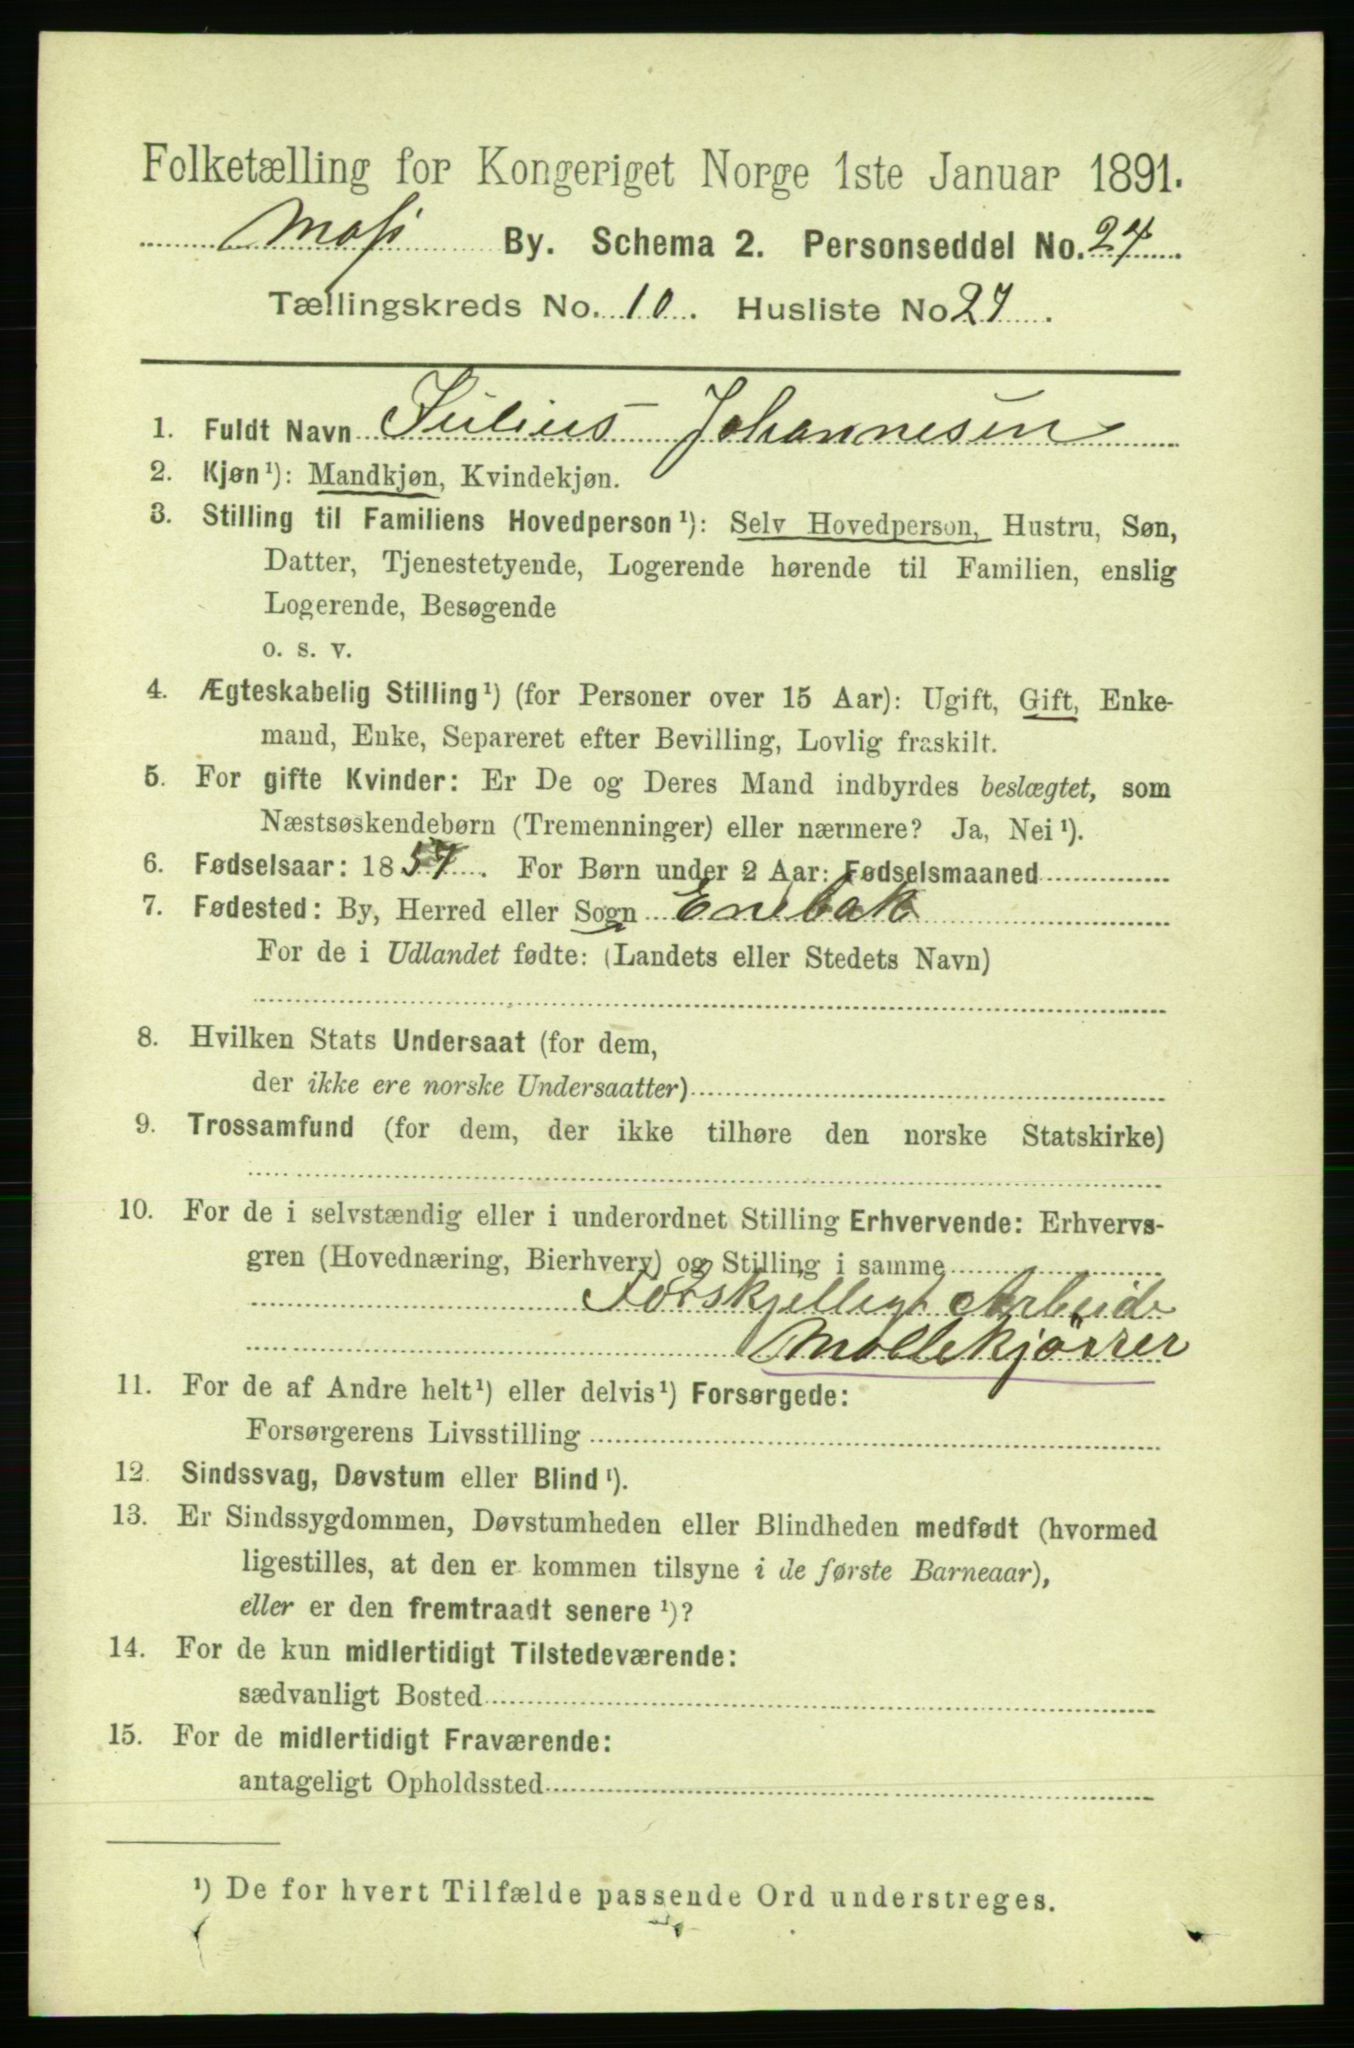 Folketælling for Kongeriget Norge 1ste Januar 1891.
Moss By. Schema 2. Personseddel No. 24
Tællingskreds No. 10. Husliste No 27.
1. Fuldt Navn Julius Johannesen
2. Kjøn¹): Mandkjøn, Kvindekjøn.
3. Stilling til Familiens Hovedperson¹): Selv Hovedperson, Hustru, Søn,
Datter, Tjenestetyende, Logerende hørende til Familien, enslig
Logerende, Besøgende
o. s. v.
4. Ægteskabelig Stilling¹) (for Personer over 15 Aar): Ugift, Gift, Enke-
mand, Enke, Separeret efter Bevilling, Lovlig fraskilt.
5. For gifte Kvinder: Er De og Deres Mand indbyrdes beslægtet, som
Næstsøskendebørn (Tremenninger) eller nærmere? Ja, Nei¹).
6. Fødselsaar: 1857. For Børn under 2 Aar: Fødselsmaaned
7. Fødested: By, Herred eller Sogn Enebak
For de i Udlandet fødte: (Landets eller Stedets Navn)
8. Hvilken Stats Undersaat (for dem,
der ikke ere norske Undersaatter)
9. Trossamfund (for dem, der ikke tilhøre den norske Statskirke)
10. For de i selvstændig eller i underordnet Stilling Erhvervende: Erhvervs-
gren (Hovednæring, Bierhverv) og Stilling i samme
Forskjelligt Arbeide
Møllekjører
11. For de af Andre helt¹) eller delvis¹) Forsørgede:
Forsørgerens Livsstilling
12. Sindssvag, Døvstum eller Blind¹).
13. Er Sindssygdommen, Døvstumheden eller Blindheden medfødt (hvormed
ligestilles, at den er kommen tilsyne i de første Barneaar),
eller er den fremtraadt senere¹)?
14. For de kun midlertidigt Tilstedeværende:
sædvanligt Bosted
15. For de midlertidigt Fraværende:
antageligt Opholdssted
¹) De for hvert Tilfælde passende Ord understreges.